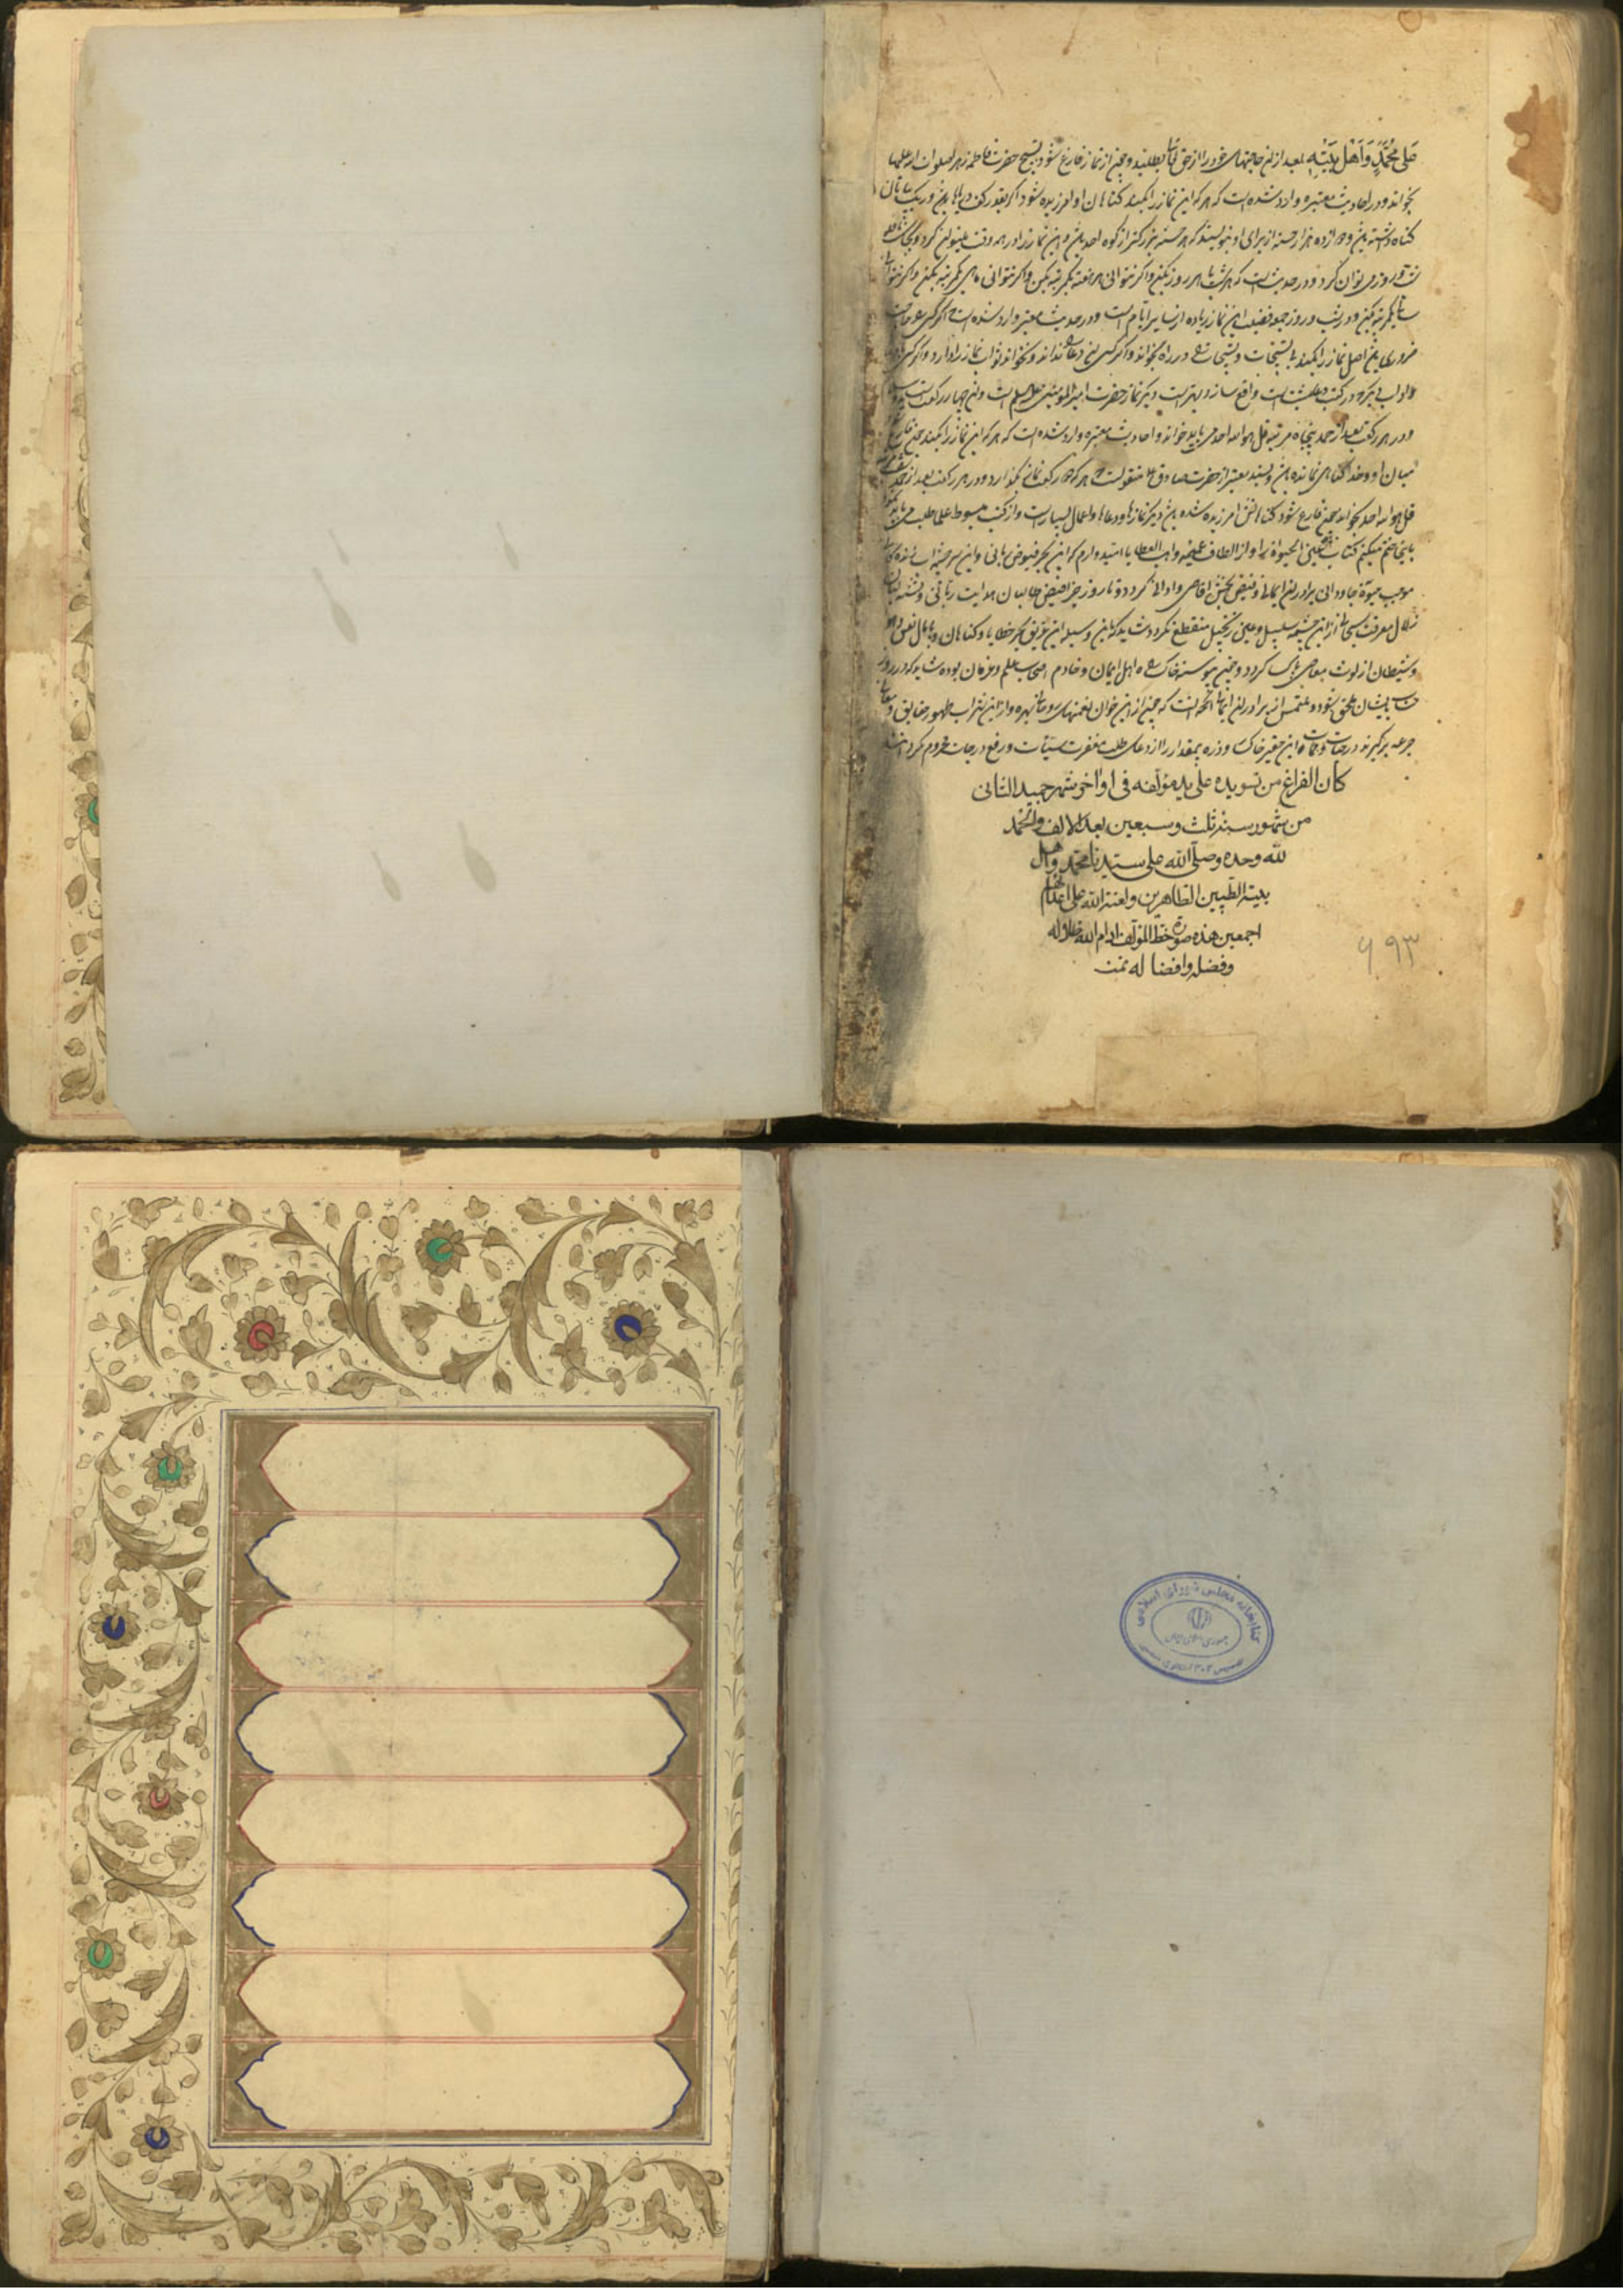 علی محمد و اهل بیته بعد از آن حاجتهای خود را از حق تعالی بطلبد و چون از نماز فارغ شود تسبیح حضرت فاطمه زهرا صلوات الله علیها
بخواند و در احادیث معتبره وارد شده است که هر که این نماز را بکند کناهان او امرزیده شود اکر بقدر کف دریاها
کناه داشته باشد و دوازده هزار حسنه از برای او بنویسند که هر حسنه بزرکتر از کوه احد باشد و این نماز را در همه وقت میتوان کرد
روز می توان کرد و در حدیث است که هر شب یا هر روز بکن و اکر نتوانی هر هفته یکمرتبه بکن و اکر نتوانی ماهی یکمرتبه بکن و اکر نتوانی
سالی یکمرتبه بکن و در شب و روز جمعه فضیلت این نماز زیاده از سایر ایام است و در حدیث معتبر وارد شده است که اکر کسی
ضروری باشد اصل نماز را بکند بی تسبیحات و تسبیحات را در راه بخواند و اکر کسی این دعا را نداند و نخواند ثواب نماز را دارد و اکر کسی
واقع سازد بهتر است و دیکر نماز حضرت امیر المؤمنین علیه السلم است و آن چهار رکعت است
و در هر رکعت بعد از حمد پنجاه مرتبه قل هو الله احد می باید خواند و احادیث معتبره وارد شده است که هر که این نماز را بکند چون فارغ
میان او و خدا کناهی نمانده باشد و بسند معتبر از حضرت صادق ع منقولست که هر که چهار رکعت نماز بکذارد و در هر رکعت بعد از حمد
قل هو الله احد بخواند چون فارغ شود کناهانش امرزیده شده باشد و دیکر نمازها و دعاها و اعمال بسیار است و از کتب مبسوط علما طلب می باید
باینجا ختم میکنم کتاب عین الحیوة را و از الطاف عمیم واهب العطایا امیدوارم که این بحر فیوض ربانی و این سرچشمه اب زندکانی
موجب حیوة جاودانی برادران ایمانی و فیض بخش اقاصی و ادانی کردد و تا روز جزا فیض طالبان هدایت ربانی و تشنه لبان
زلال معرفت سبحانی از این چشمه سلسبیل و عین زنجبیل منقطع نکردد شاید که باین وسیله این غریق بحر خطایا و کناهان و پامال نفس و هوا
و شیطان از لوث معاصی پاک کردد و چون پیوسته خاک راه اهل ایمان و خادم اصحاب علم و عرفان بوده شاید که در روز
بایشان ملحق شود و ملتمس از برادران ایمانی انست که چون از این خوان نعمتهای روحانی بهره و از این شراب طهور حقایق و معانی
جرعه برکیرند در حیات و ممات این حقیر خاکسار و ذره بمقدار را از دعای طلب مغفرت سیئات و رفع درجات محروم نکردانند
کان الفراغ من تسویده علی ید مؤلفه فی اواخر شهر جمیدالثانی
من شهور سنة ثلث و سبعین بعد الالف و الحمد
لله وحده و صلی الله علی سیدنا محمد و اهل
بیته الطیبین الطاهرین و لعنة الله علی اعدائهم
اجمعین هذه صورة خط المؤلف ادام الله ظلاله
و فضله و افضاله تمت
۶۹۳
کتابخانه مجلس شورای اسلامی
جمهوری اسلامی ایران